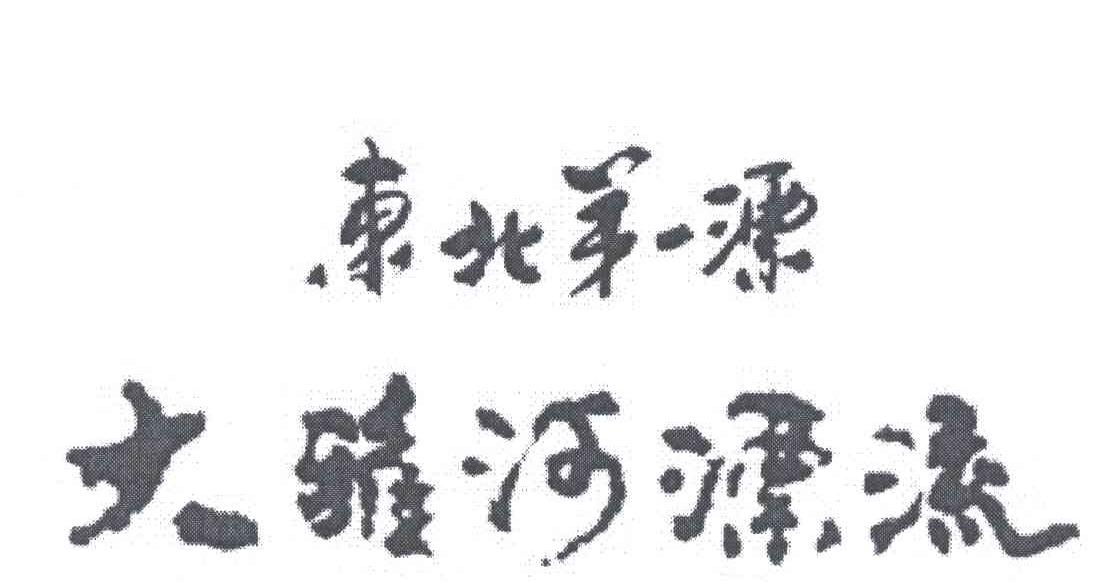 東北第一漂
大雅河漂流